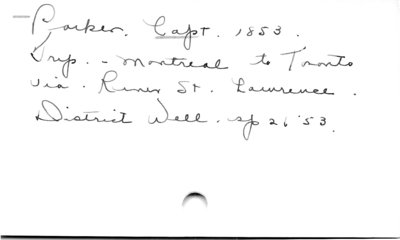 Parker. Capt. 1853.
Trip. - Montreal to Toronto
via. River St. Lawrence.
District Well. ap 26 '53.